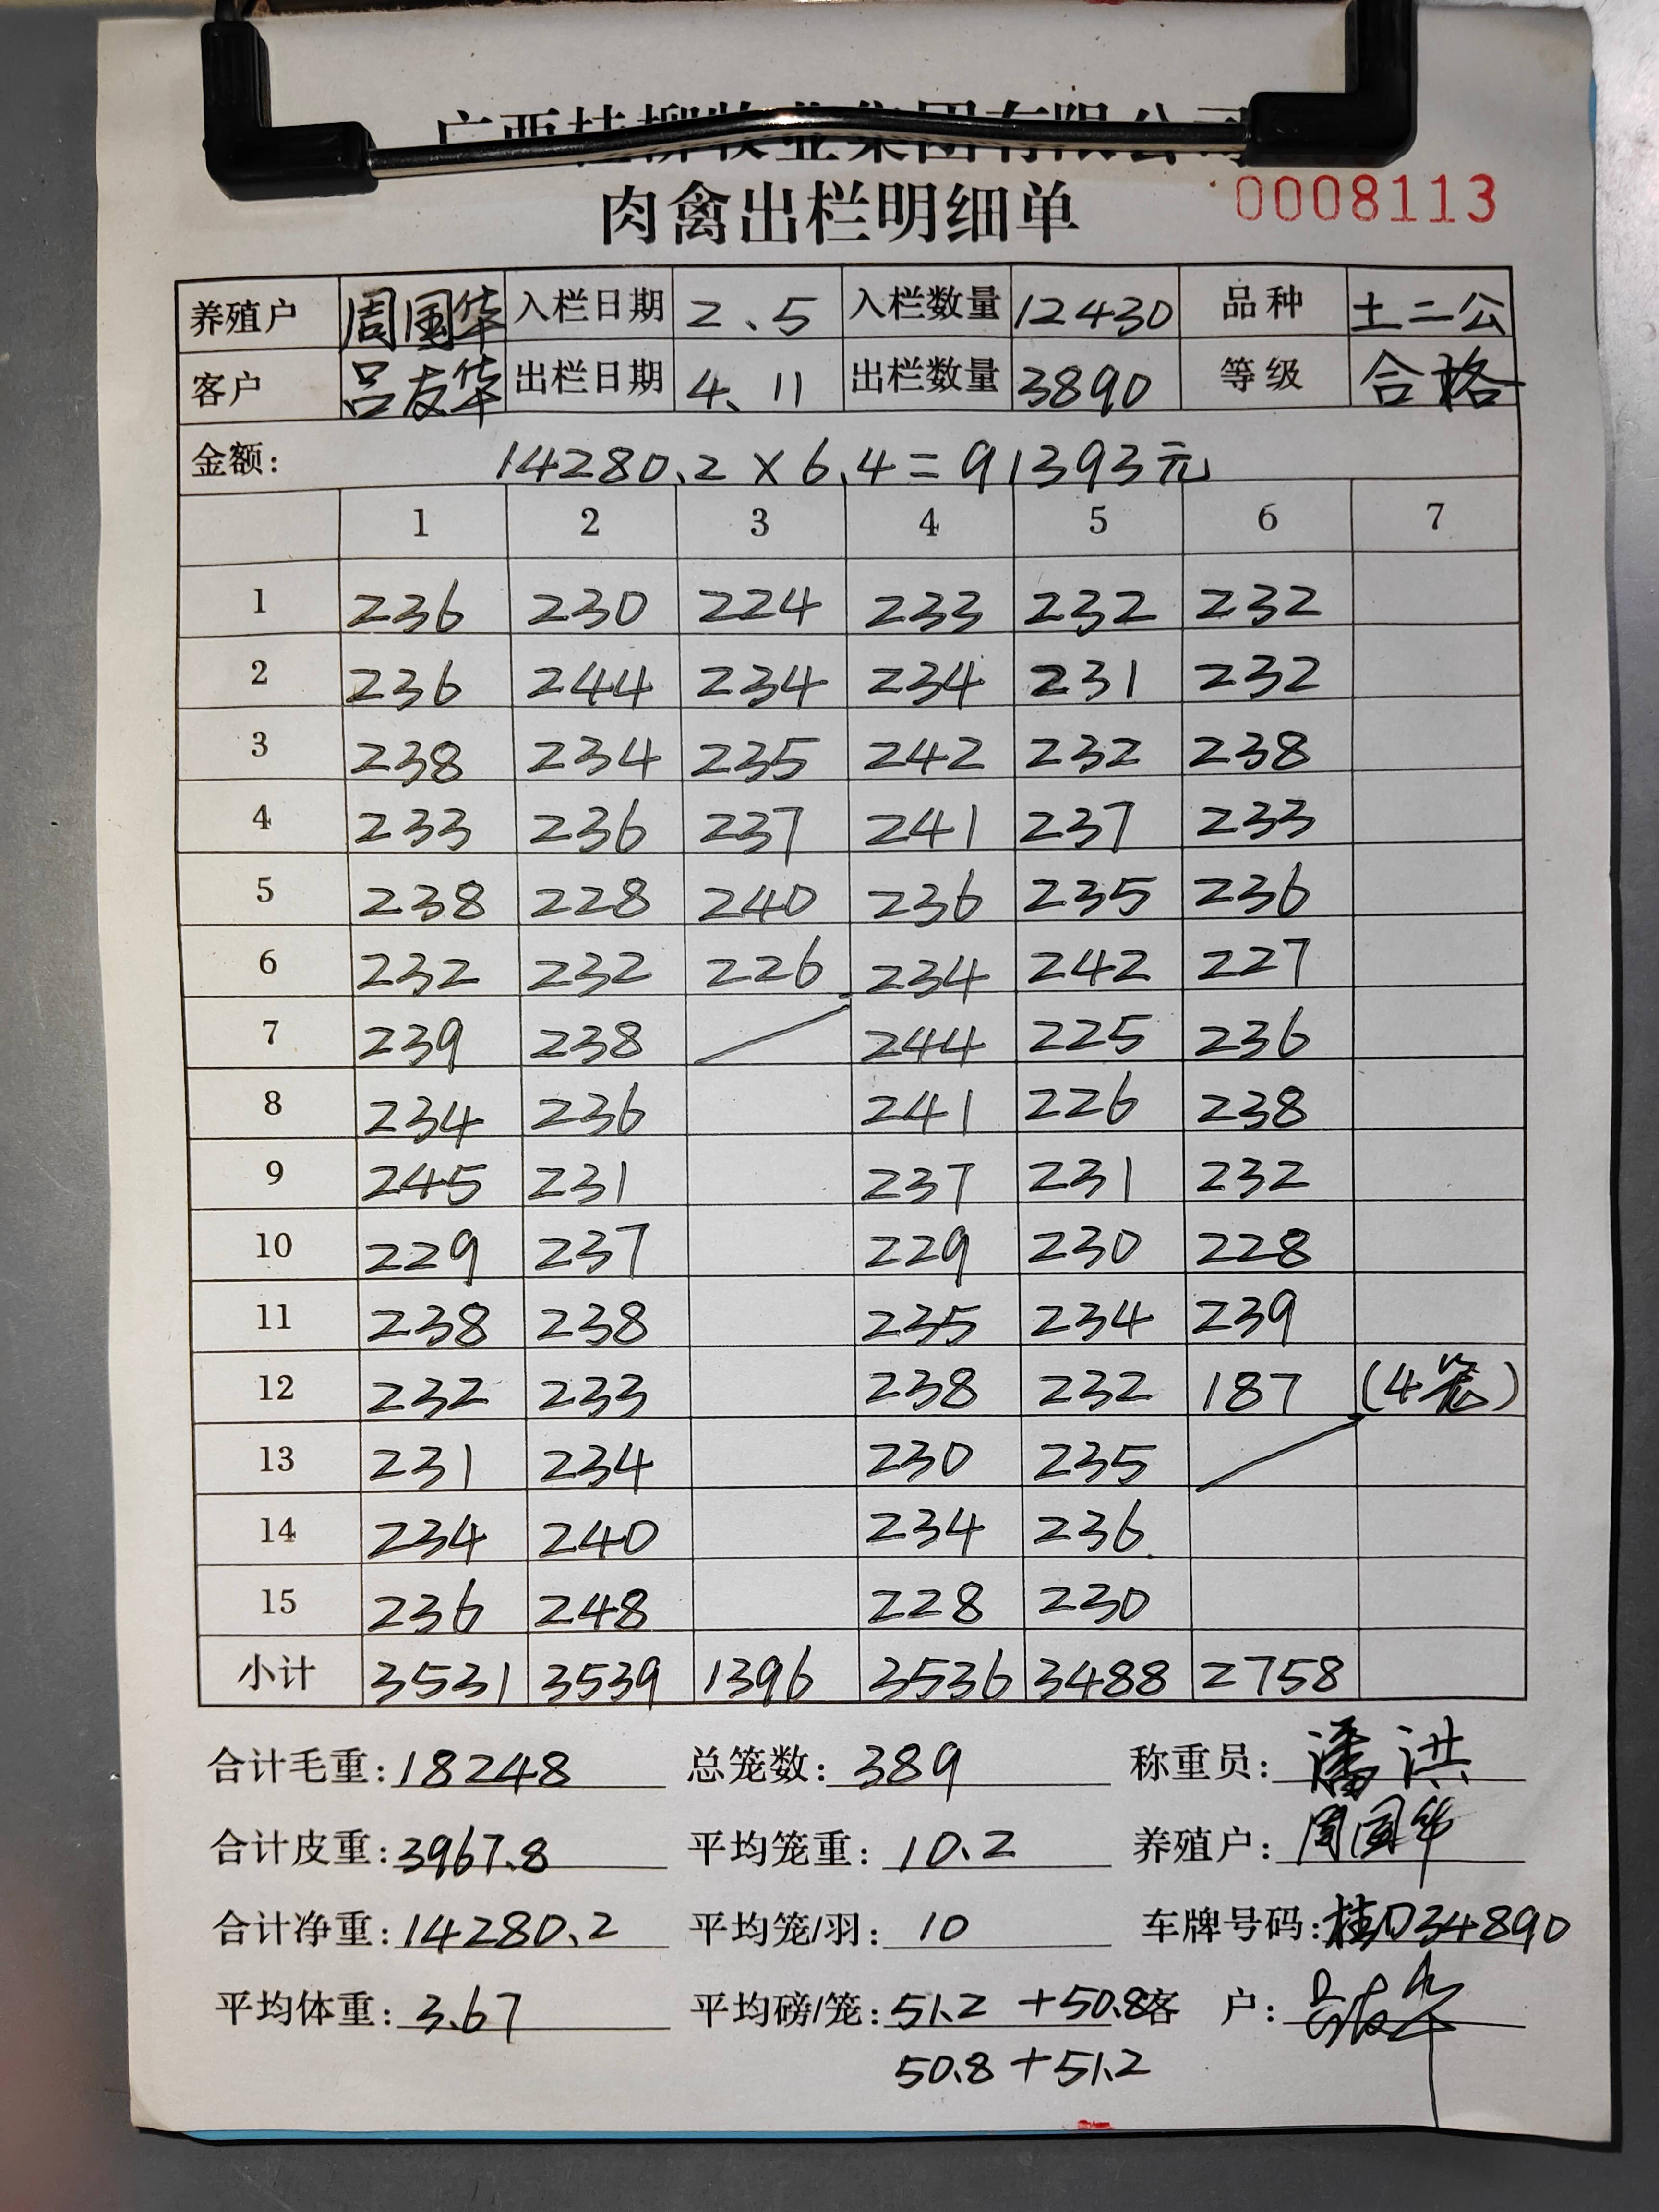 广西桂柳牧业集团有限公司
肉禽出栏明细单
0008113
养殖户 周国华 入栏日期 2.5 入栏数量 12430 品种 土二公
客户 吕友华 出栏日期 4.11 出栏数量 3890 等级 合格
金额: 14280.2×6.4=91393元
1 2 3 4 5 6 7
1 236 230 224 233 232 232
2 236 244 234 234 231 232
3 238 234 235 242 232 238
4 233 236 237 241 237 233
5 238 228 240 236 235 236
6 232 232 226 234 242 227
7 239 238 244 225 236
8 234 236 241 226 238
9 245 231 237 231 232
10 229 237 229 230 228
11 238 238 235 234 239
12 232 233 238 232 187 (4笼)
13 231 234 230 235
14 234 240 234 236
15 236 248 228 230
小计 3531 3539 1396 3536 3488 2758
合计毛重: 18248 总笼数: 389 称重员: 潘洪
合计皮重: 3967.8 平均笼重: 10.2 养殖户: 周国华
合计净重: 14280.2 平均笼/羽: 10 车牌号码: 桂D34890
平均体重: 3.67 平均磅/笼: 51.2+50.8 客 户: 吕友华
50.8+51.2